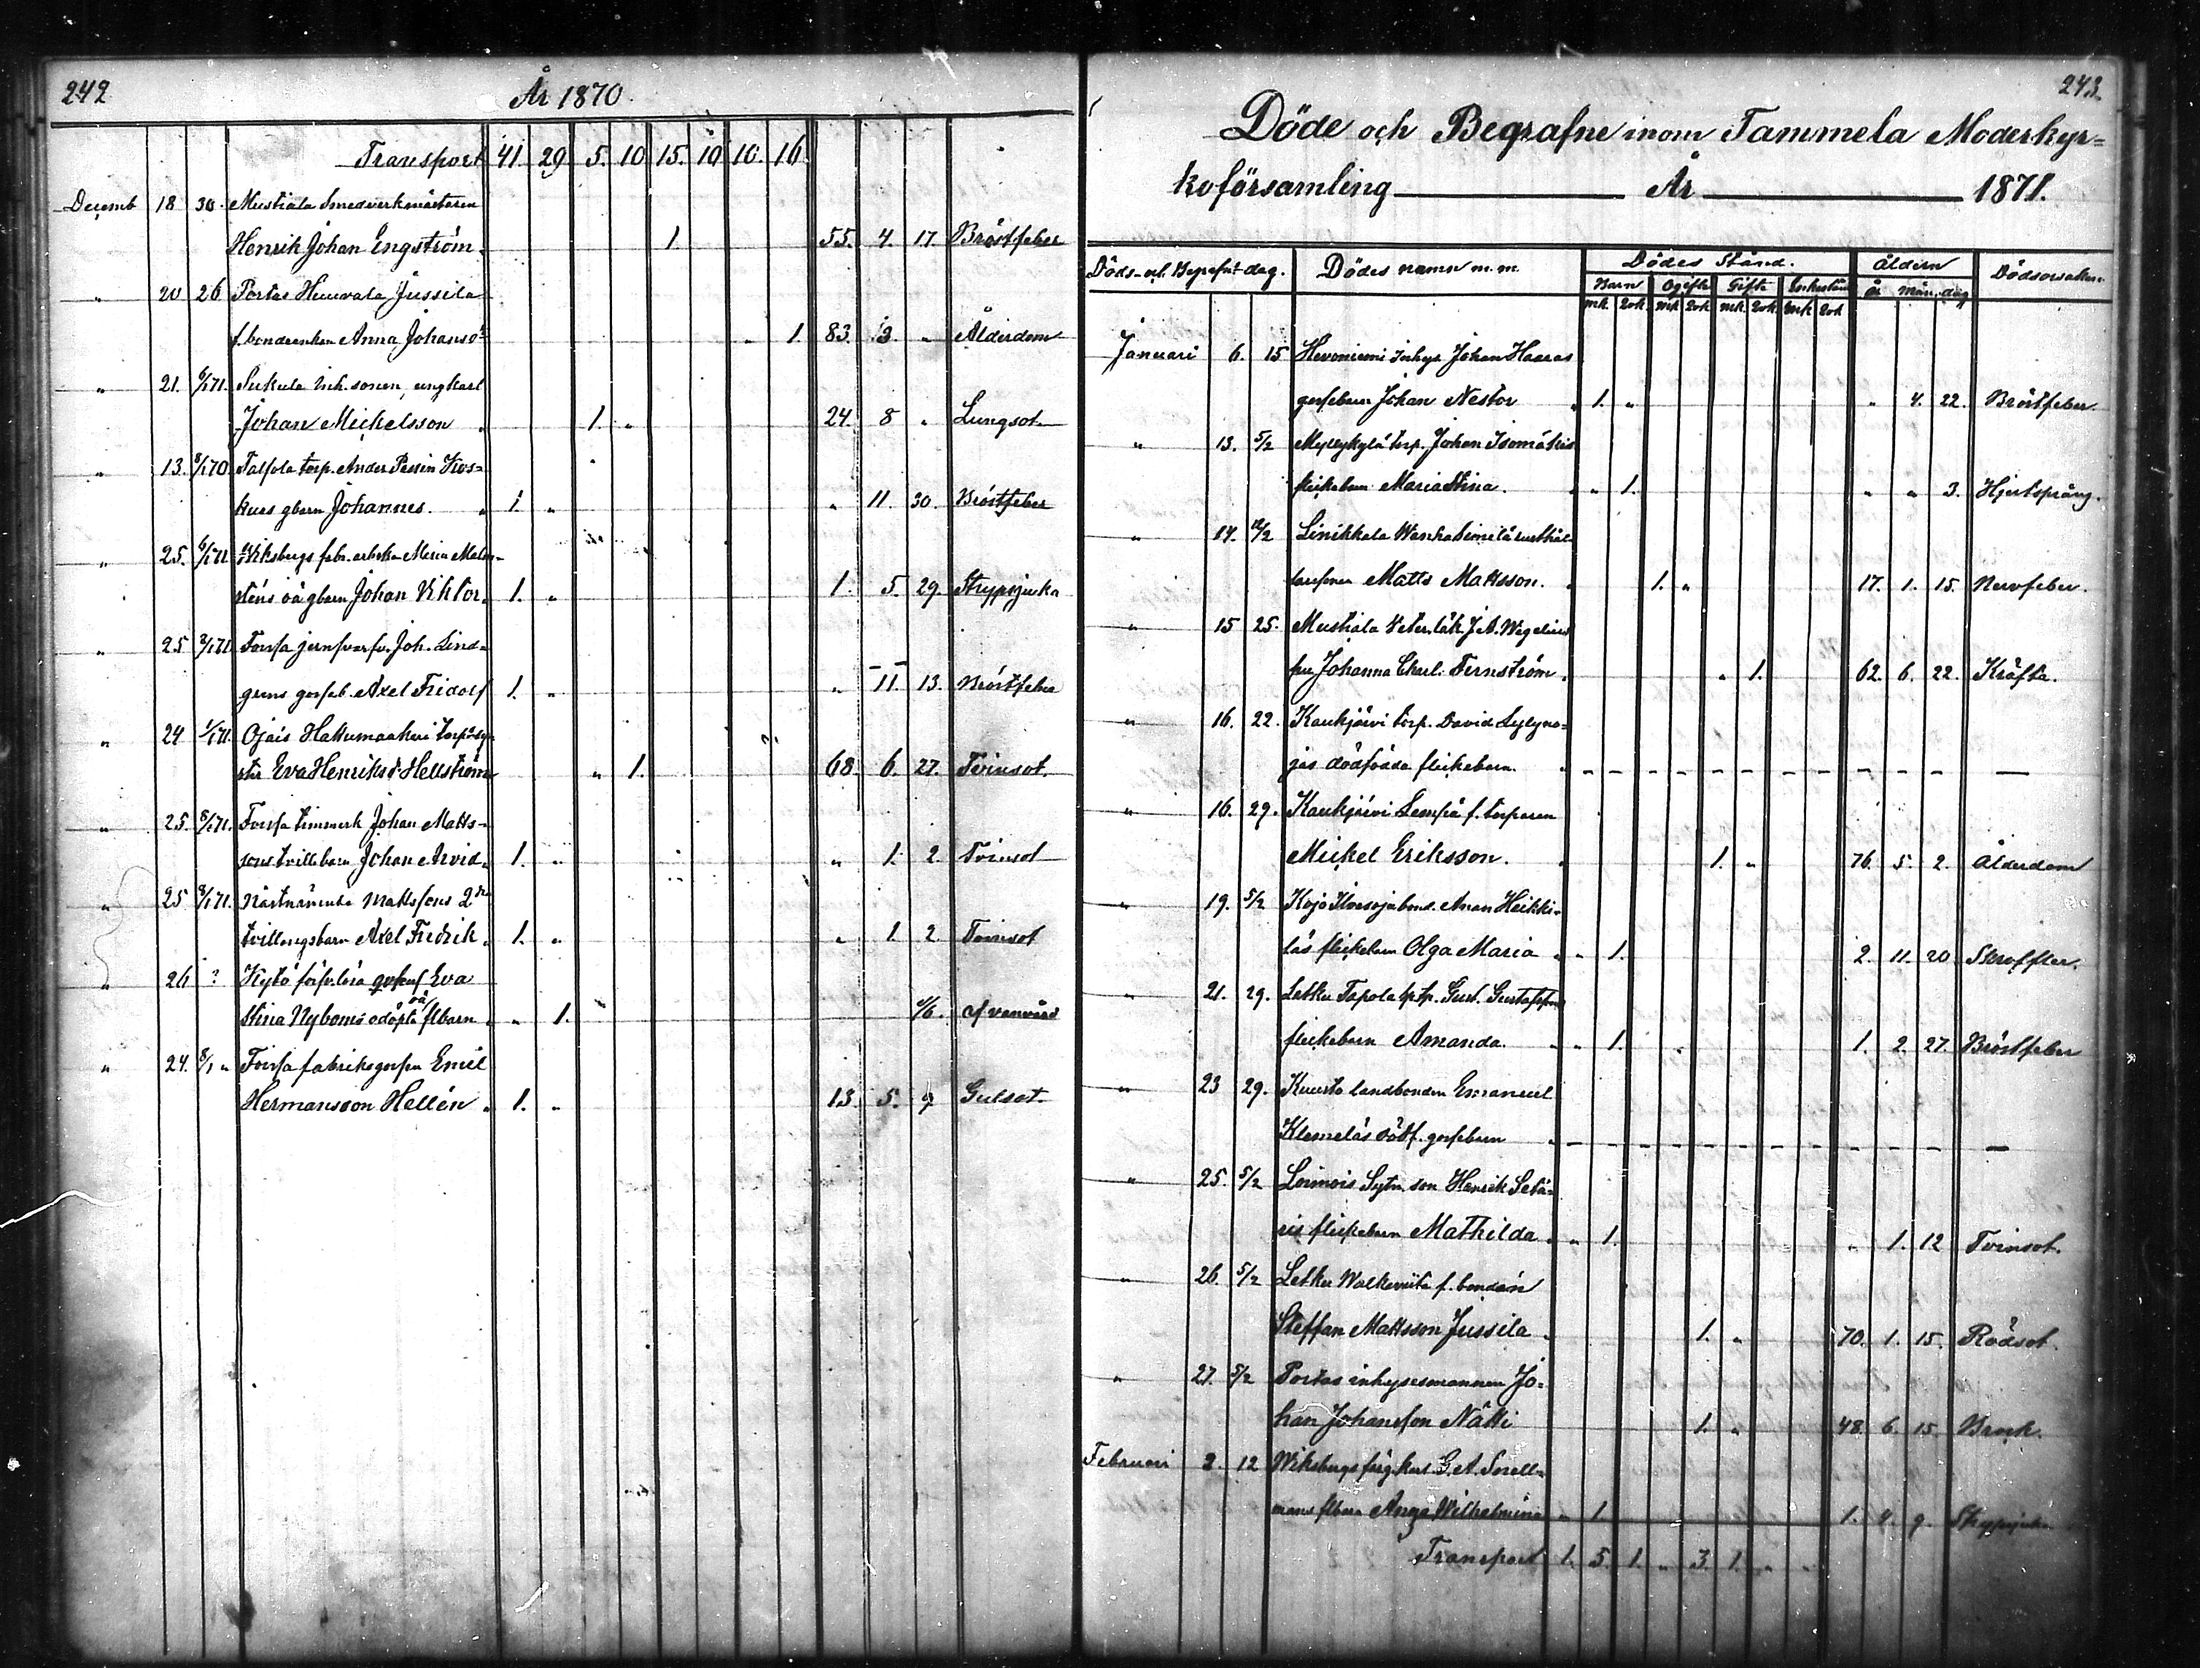 242
År 1870.
Transport 41. 29. 5. 10. 15. 19. 10. 16.
Decemb 18 30. Mustiala Smedverkmästaren
Henrik Johan Engström. 1. 55. 4. 17. Bröstfeber
" 20 26 Portas Jussila
Anna 1. 83. 3. " Ålderdom
" 21. 6/1 71. Sukula inh. sonen, ungkarl
Johan Mickelsson " 1. " 24. 8 " Lungsot
" 13. 8/1 70. torp. Ander Pessin Kos-
kues gbarn Johannes. " 1. " " 11. 30. Bröstfeber
" 25. 6/1 71. Wiksbergs fabr. Maria Malm-
sténs oä gbarn Johan Viktor. 1. " 1. 5. 29. Strypsjuka
" 25 Forssa Joh. Lind-
grens gosseb. Axel Fridolf 1. " " 11. 13. Bröstfeber
" 24 1/1 71. Ojais
Eva Henriksd. Hellström " 1. 68. 6. 27. Tvinsot.
" 25. 8/1 71. Forssa timmerk Johan Matts-
sons tvillebarn Johan Arvid. 1. " " 1. 2. Tvinsot
" 25 8/1 71. Nästnämnda Mattssons 2dra
tvillingsbarn Axel Fredrik. 1. " " 1. 2. Tvinsot
" 26 ? Eva
Stina Nyboms odöpta oä flbarn " 1. 1/6. af vanvård
" 24. 8/1 " Forssa fabriksgossen Emil
Hermansson Hellén " 1. " 13. 5. 9. Gulsot.
243.
Döde och Begrafne inom Tammela Moderkyr-
koförsamling År 1871.
Döds- och Begrafn.-dag. Dödes namn m.m. Dödes Stånd. Åldern Dödsorsaken.
Barn Ogifte Gifte Enkestånd år mån. dag
mk. qvk. mk. qvk. mk. qvk. mk. qvk.
Januari 6. 15 Hevoniemi inhys. Johan Haaras
gossebarn Johan Nestor " 1. " " 4. 22. Bröstfeber.
" 13. 5/2 Myllykylä torp. Johan Isomäkis
flickebarn Maria Stina. " " 1. " " 3. Hjertsprång.
" 14. 12/2 Linikkala
Matts Mattsson. " 1. " 17. 1. 15. Nervfeber.
" 15 25. Mustiala Veter. läk. J. A. Wegelius
fru Johanna Charl. Fernström. " 1. 62. 6. 22. Kräfta.
" 16. 22. Kaukjärvi torp. David Sylyno-
jas dödfödda flickebarn.
" 16. 29. Kaukjärvi f. torparen
Mickel Eriksson. " 1. " 76. 5. 2. Ålderdom
" 19. 5/2 Kojo Heikki-
läs flickebarn Olga Maria " " 1. 2. 11. 20. Skroffler.
" 21. 29. Letku Tapola Gust. Gustafssons
flickebarn Amanda. " " 1. 1. 2. 27. Bröstfeber
" 23 29. Kuusto landbonden Emanuel
Klemeläs dödf. gossebarn
" 25. 5/2 Lunois son Henrik Setä-
flickebarn Mathilda " " 1. " 1. 12 Tvinsot.
" 26. 5/2 Letku f. bonden
Steffan Mattsson Jussila " 1. " 70. 1. 15. Rödsot.
" 27. 5/2 Portas inhysesmannen Jo-
han Johansson Nätti 1. " 48. 6. 15. Brock.
Februari 2. 12 Wiksbergs G. A. Snell-
mans flbarn Wilhelmina " 1. 1. 4. 9. Strypsjuka
Transport 1. 5. 1. " 3. 1. " "